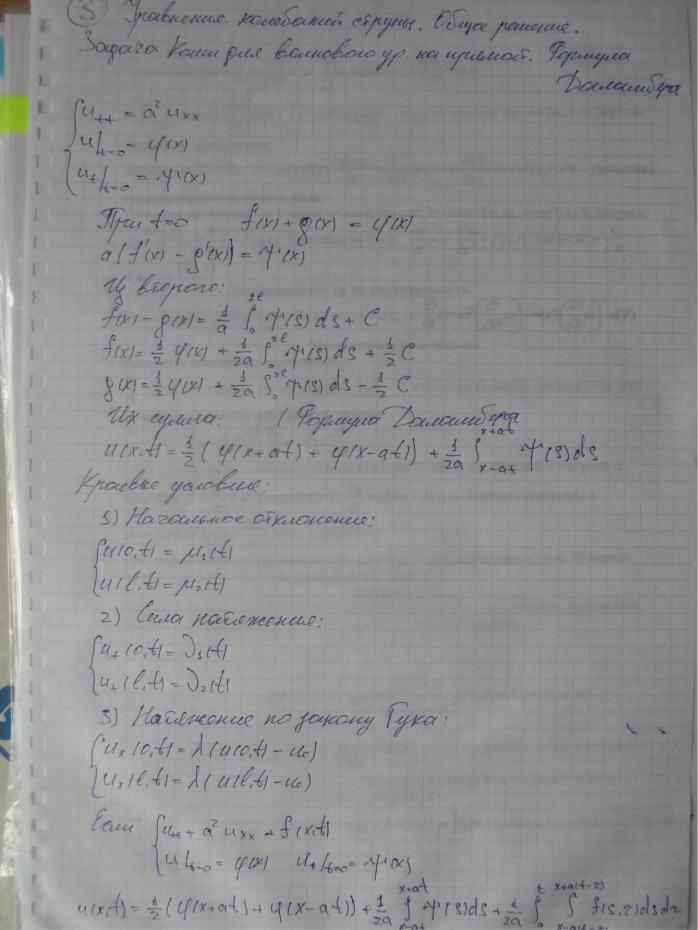 3 Уравнение колебаний струны. Общее решение.
Задача Коши для волнового ур. на прямой. Формула
Даламбера
{ u_tt = a² u_xx
u|_{t=0} = φ(x)
u_t|_{t=0} = ψ(x)
При t=0 f(x) + g(x) = φ(x)
a(f'(x) - g'(x)) = ψ(x)
Из второго:
f(x) - g(x) = 1/a ∫_0^x ψ(s) ds + C
f(x) = 1/2 φ(x) + 1/2a ∫_0^x ψ(s) ds + 1/2 C
g(x) = 1/2 φ(x) + 1/2a ∫_0^x ψ(s) ds - 1/2 C
Их сумма: (Формула Даламбера
u(x,t) = 1/2 (φ(x+at) + φ(x-at)) + 1/2a ∫_{x-at}^{x+at} ψ(s) ds
Краевые условие:
1) Начальное отклонение:
{ u(0,t) = μ₁(t)
u(l,t) = μ₂(t)
2) Сила натяжения:
{ u_t(0,t) = ν₁(t)
u_t(l,t) = ν₂(t)
3) Натяжение по закону Гука:
{ u_x(0,t) = λ(u(0,t) - u₀)
u_x(l,t) = λ(u(l,t) - u₀)
Если { u_tt + a² u_xx + f(x,t)
u|_{t=0} = φ(x) u_t|_{t=0} = ψ(x)
u(x,t) = 1/2 (φ(x+at) + φ(x-at)) + 1/2a ∫_{x-at}^{x+at} ψ(s) ds + 1/2a ∫_0^t ∫_{x-a(t-τ)}^{x+a(t-τ)} f(s,τ) ds dτ